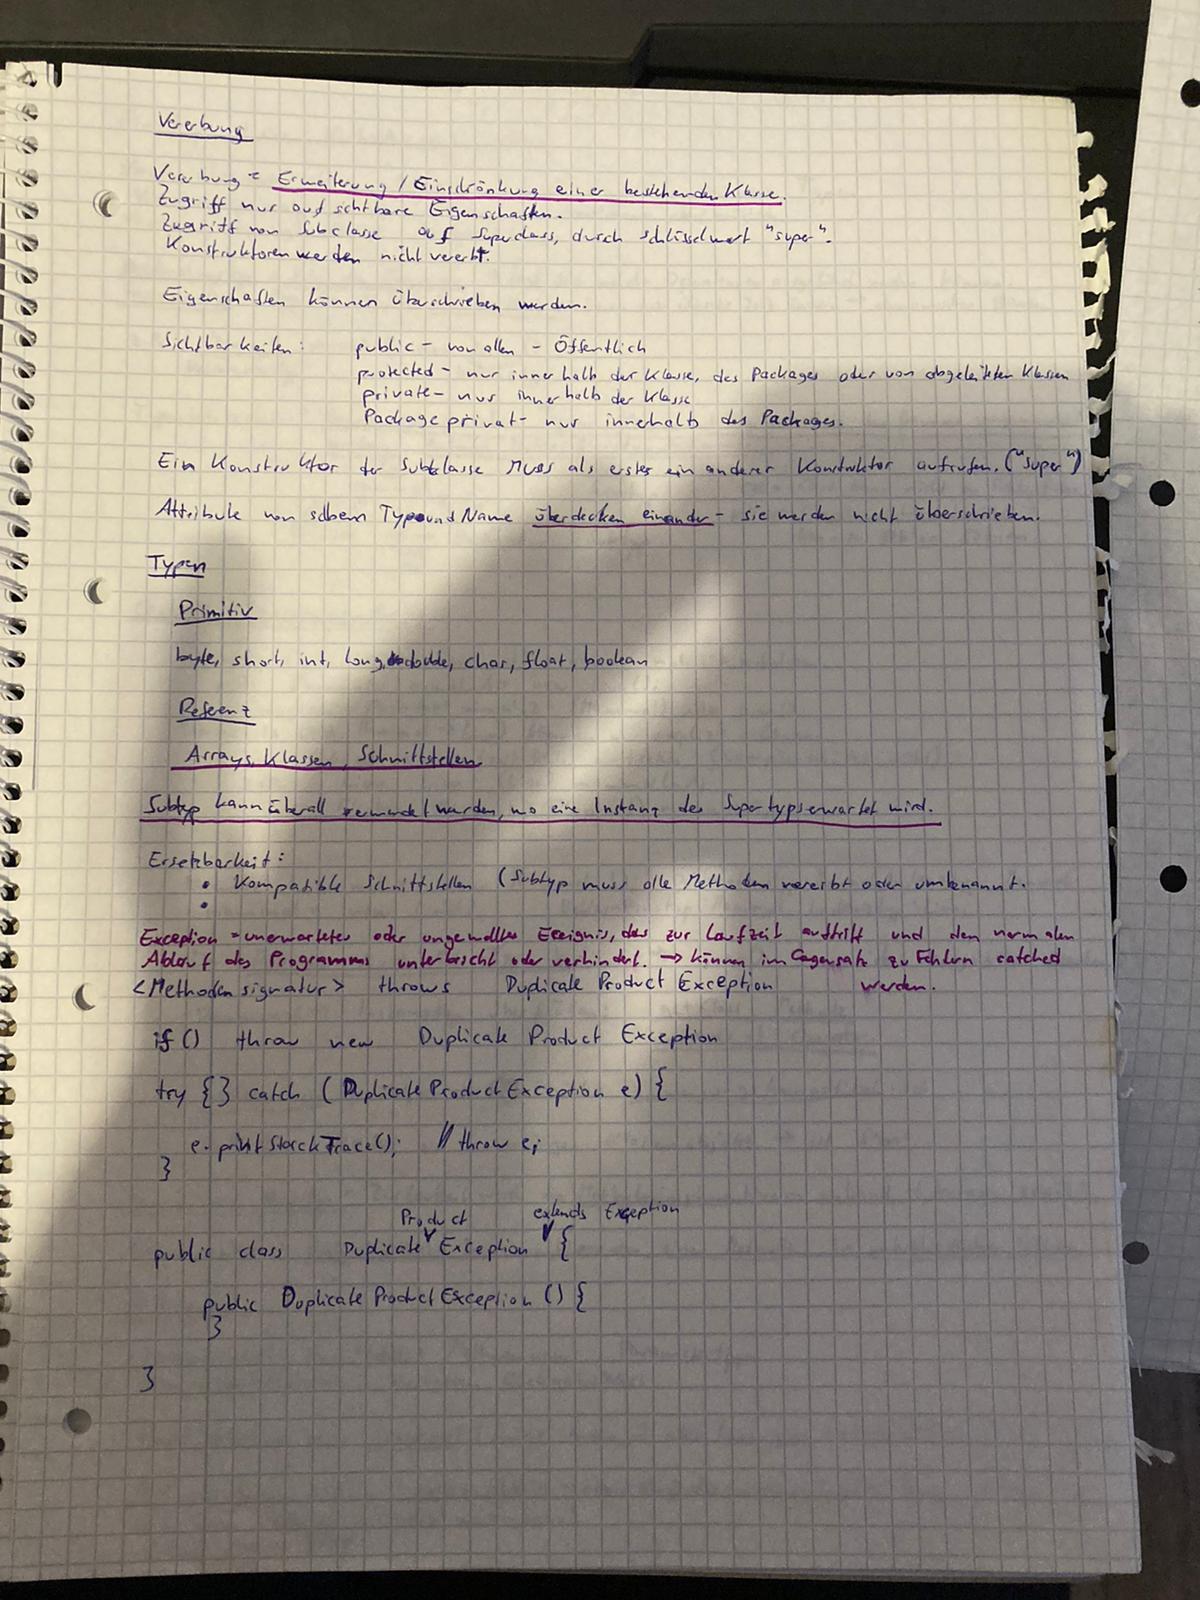 Vererbung
Vererbung = Erweiterung / Einschränkung einer bestehenden Klasse.
Zugriff nur auf sichtbare Eigenschaften.
Zugriff von Subclasse auf Superclass, durch schlüsselwort "super".
Konstruktoren werden nicht vererbt.
Eigenschaften können überschrieben werden.
Sichtbarkeiten: public - von allen - Öffentlich
protected - nur innerhalb der Klasse, des Packages oder von abgeleiteten Klassen
private - nur innerhalb der Klasse
Package privat - nur innerhalb des Packages.
Ein Konstruktor der Subklasse Muss als erstes ein anderer Konstruktor aufrufen. ("super")
Attribute von selbem Typ und Name überdecken einander - sie werden nicht überschrieben.
Typen
Primitiv
byte, short, int, long, double, char, float, boolean
Referenz
Arrays, Klassen, Schnittstellen
Subtyp kann überall verwendet werden, wo eine Instanz des Supertyps erwartet wird.
Ersetzbarkeit:
• Kompatible Schnittstellen (Subtyp muss alle Methoden vererbt oder umbenannt.
•
Exception = unerwartetes oder ungewolltes Ereignis, das zur Laufzeit auftritt und den normalen
Ablauf des Programms unterbricht oder verhindert. → können im Gegensatz zu Fehlern catched
werden.
<Methodensignatur> throws Duplicate Product Exception
if () throw new Duplicate Product Exception
try { } catch (Duplicate Product Exception e) {
e. printStackTrace(); // throw e;
}
Product extends Exception
public class Duplicate Exception {
public Duplicate Product Exception () {
}
}